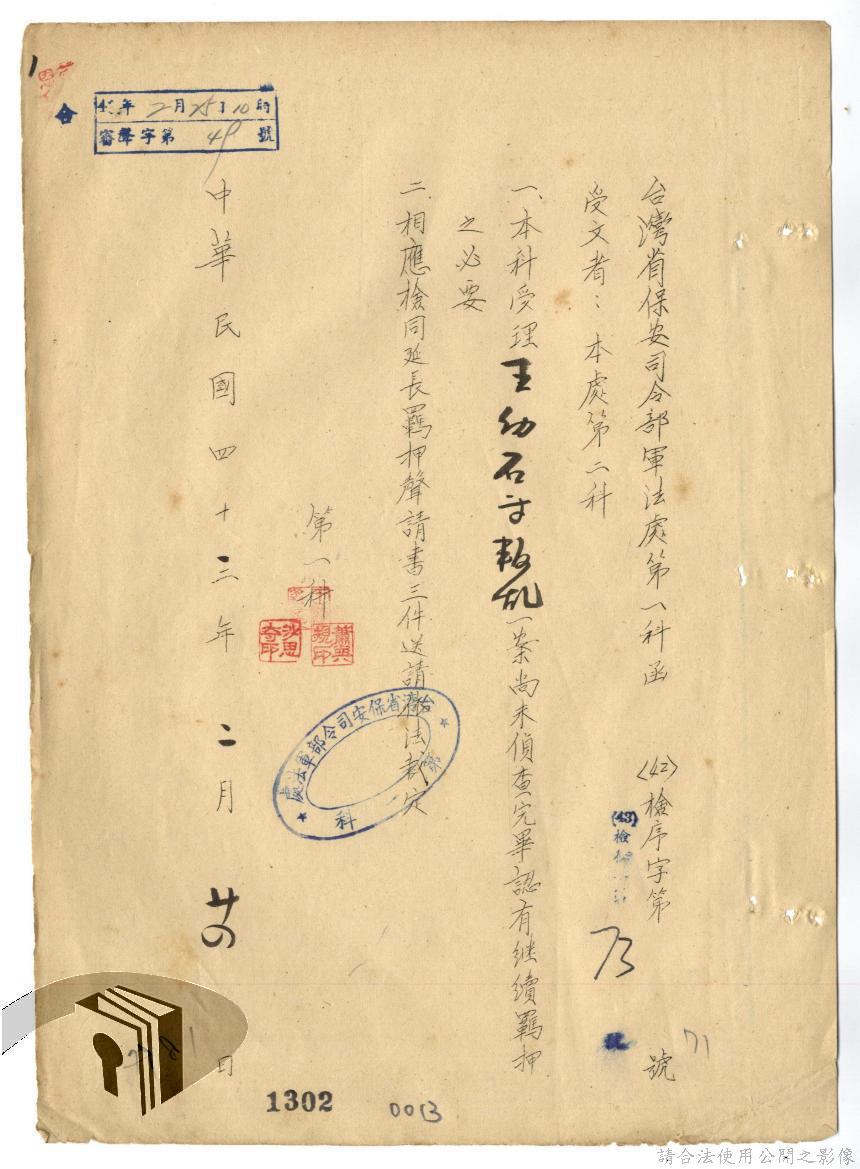 台灣省保安司令部軍法處第一科函
〈42〉檢序字第 號
(43)檢
73
號
71
受文者：本處第二科
一、本科受理王幼石等叛乱一案尚未偵查完畢認有继續羈押
之必要
二、相應檢同延長羈押聲請書三件送請依法裁定
第一科
蕭典
規印
沙思
奇印
台灣省保安司令部軍法處
第一科
中華民國四十三年二月廿四日
年2月25日10時
審聲字第49號
1302
0013
請合法使用公開之影像